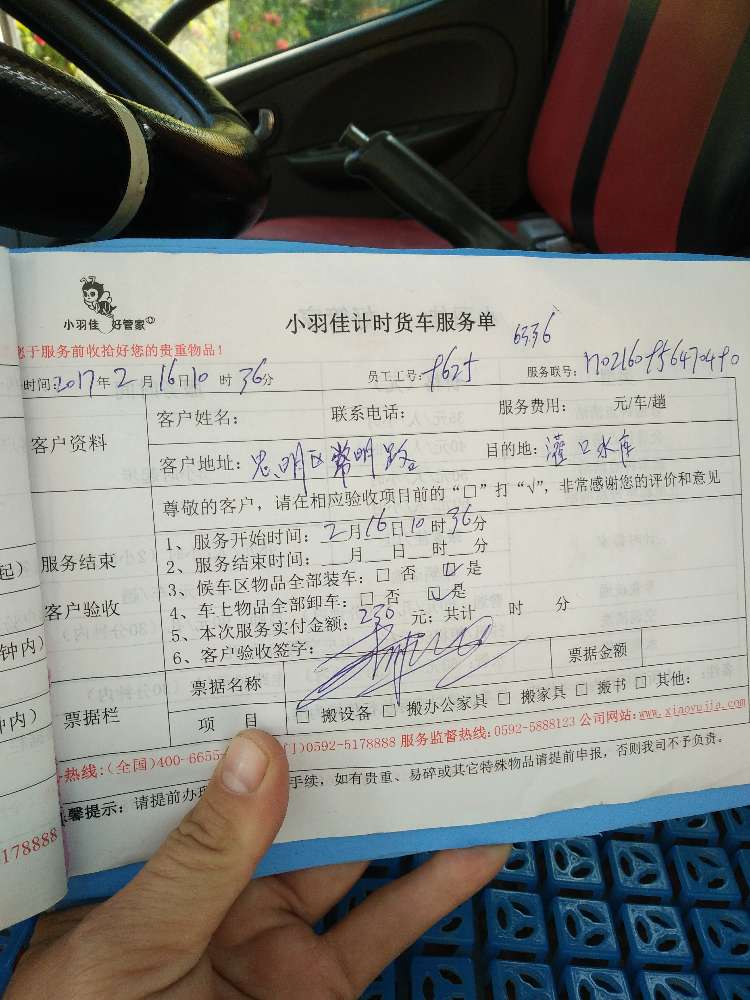 小羽佳 好管家
小羽佳计时货车服务单
6336
您于服务前收拾好您的贵重物品！
时间:2017年2月16日10时36分 员工工号: 服务联号:
客户资料
客户姓名: 联系电话: 服务费用: 元/车/趟
客户地址: 思明区常明路 目的地: 灌口水库
尊敬的客户，请在相应验收项目前的“□”打“√”，非常感谢您的评价和意见
服务结束
客户验收
1、服务开始时间: 2月16日10时36分
2、服务结束时间: ___月___日___时___分
3、候车区物品全部装车: □ 否 ☑ 是
4、车上物品全部卸车: □ 否 ☑ 是
5、本次服务实付金额: 230 元; 共计 时 分
6、客户验收签字:
票据栏
票据名称 票据金额
项 目 □ 搬设备 □ 搬办公家具 □ 搬家具 □ 搬书 □ 其他:
热线:(全国)400-6655 门)0592-5178888 服务监督热线:0592-5888123 公司网站:www.xiaoyujia.com
馨提示: 请提前办 手续，如有贵重、易碎或其它特殊物品请提前申报，否则我司不予负责。
起）
钟内）
钟内）
178888